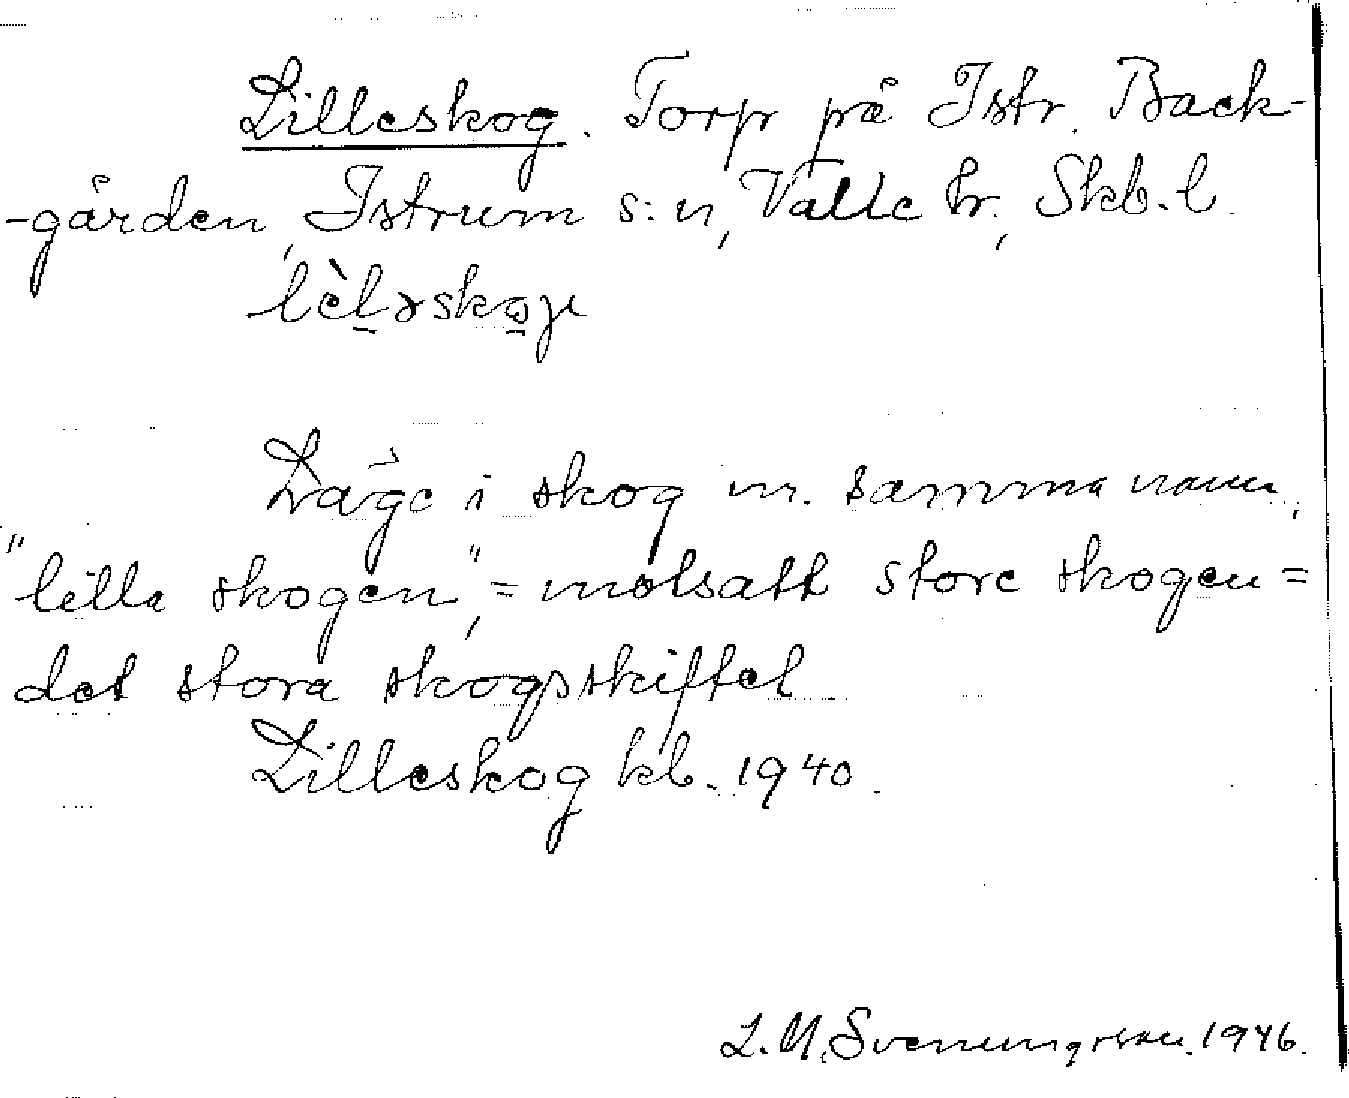 Lilleskog. Torp på Istr. Back-
-gården, Istrum s:n, Valle hr, Skb. l.
lèl̠əsko̠ɡ
Läge i skog m. samma namn,
"lilla skogen", = motsatt store skogen =
det stora skogsskiftet
Lilleskog kb. 1940.
L. M. Svenungsson. 1946.